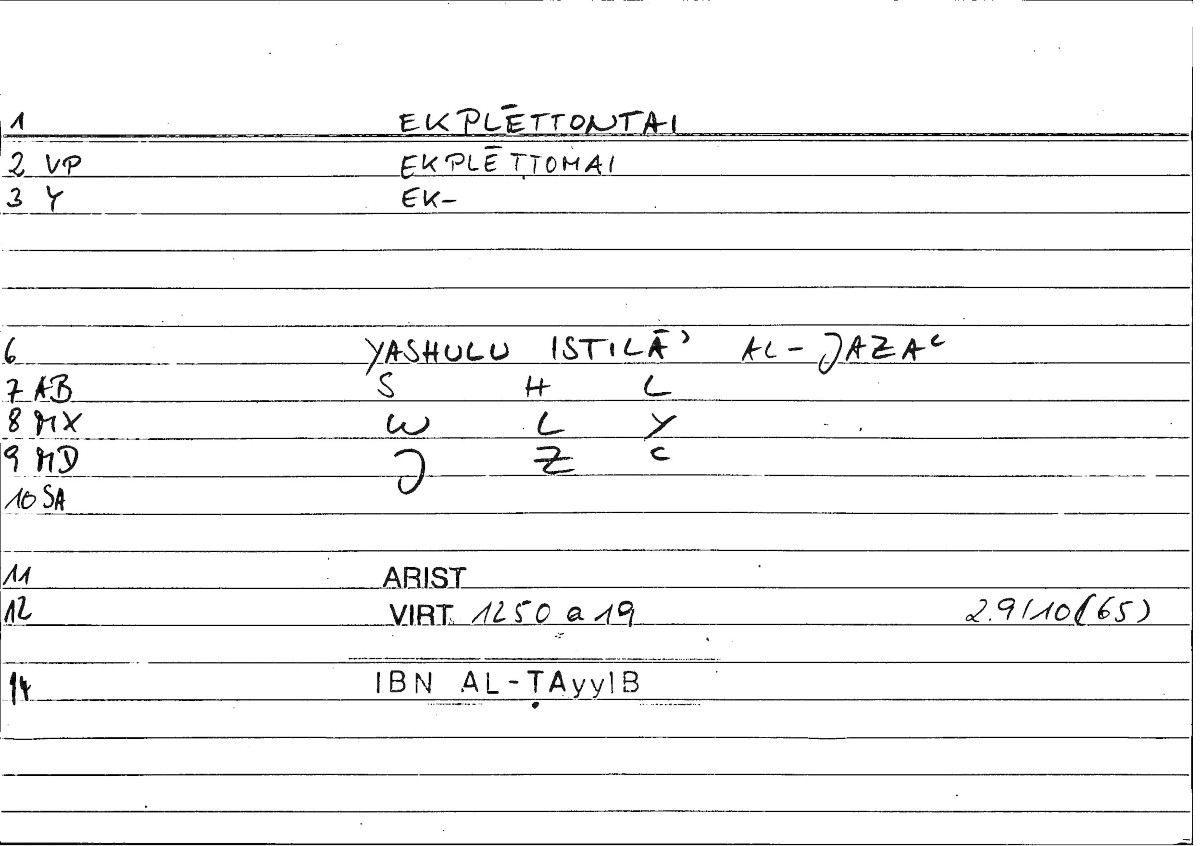 1 EKPLĒTTONTAI
2 VP EKPLĒTTOMAI
3 Y EK-
6 YASHULU ISTILĀʾ AL-JAZAʿ
7 AB S H L
8 MX W L Y
9 MD J Z ʿ
10 SA
11 ARIST
12 VIRT. 1250 a 19 2.9/10(65)
14 IBN AL-ṬAyyIB